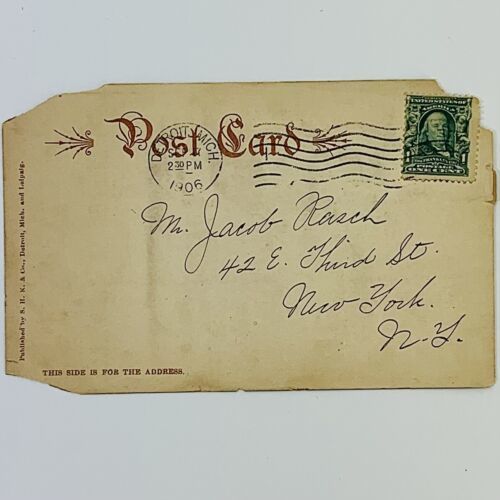 Post Card
DETROIT, MICH.
2 30 PM
1906
UNITED STATES OF AMERICA
1 1
FRANKLIN
POSTAGE
ONE CENT
Mr. Jacob Rasch
42 E. Third St.
New York.
N.Y.
Published by S. H. K. & Co., Detroit, Mich. and Leipzig.
THIS SIDE IS FOR THE ADDRESS.